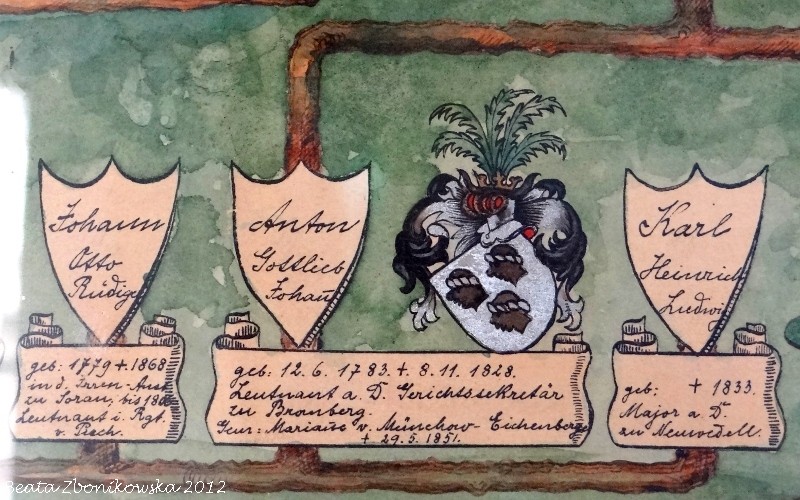 Johann
Otto
Rüdiger
geb: 1779 + 1868
in d. Irren-Anst.
zu Sorau, bis 18
Leutnant i. Rgt.
v.
Anton
Gottlieb
Johann
geb: 12. 6. 1783. + 8. 11. 1828.
Leutnant a. D. Gerichtssekretär
zu Bromberg.
Gem: Mariane v. Münchow-Eichenberge
+ 29.5. 1851.
Karl
Heinrich
Ludwig
geb: + 1833.
Major a. D.
zu Neuwedell.
Beata Zbonikowska 2012